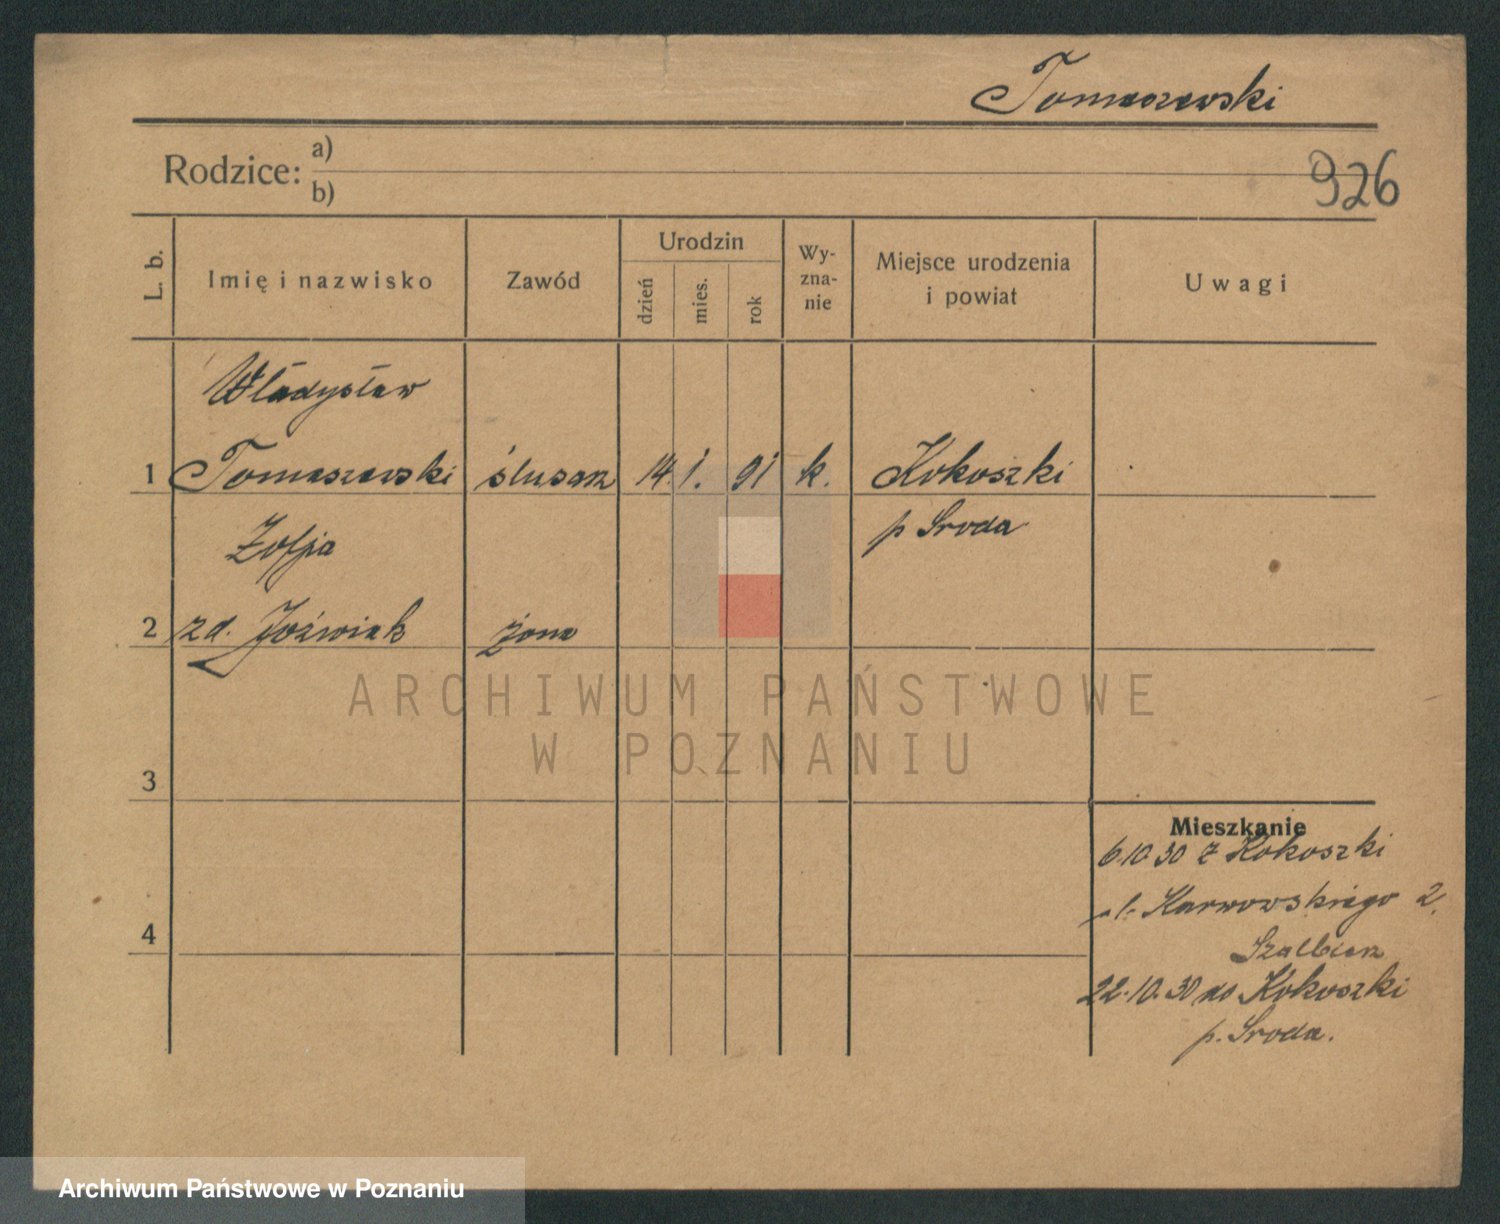 Tomaszewski
Rodzice: a)
b)
926
L. b.
Imię i nazwisko
Zawód
Urodzin
dzień
mies.
rok
Wy-
zna-
nie
Miejsce urodzenia
i powiat
Uwagi
Władysław
1 Tomaszewski ślusarz 14. 1. 91 k. Kokoszki
p Środa
Zofja
2 zd. Jóźwiak żona
ARCHIWUM PAŃSTWOWE
W POZNANIU
3
Mieszkanie
6.10 30 z Kokoszki
ul. Karwowskiego 2.
4
22.10.30 do Kokoszki
p. Środa.
Archiwum Państwowe w Poznaniu